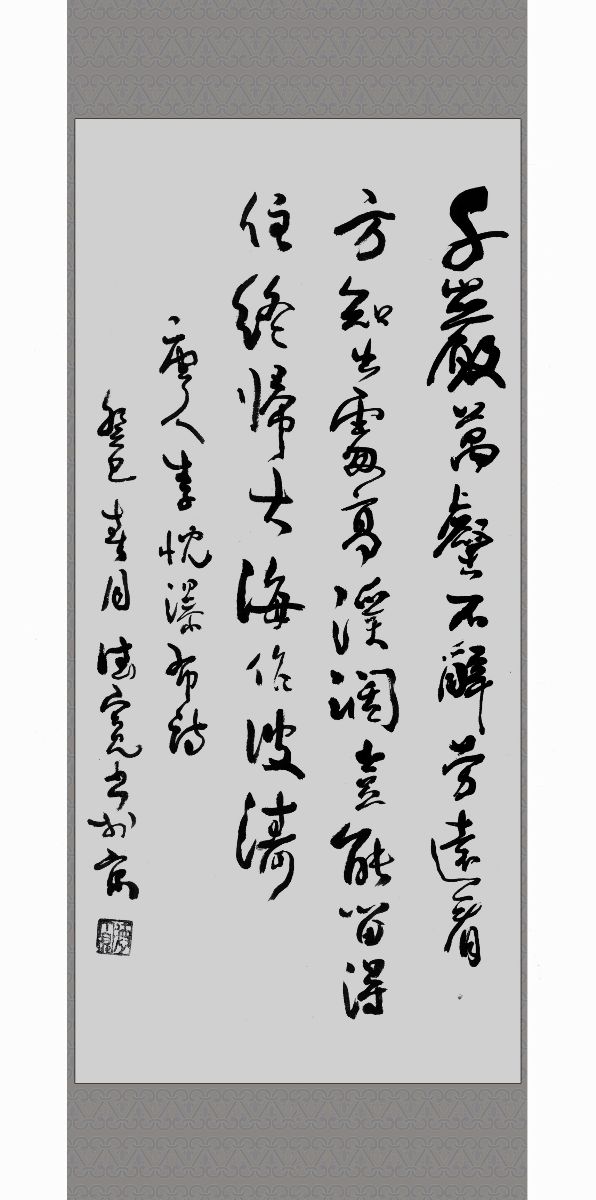 千巖萬壑不辭勞遠看
方知出處高溪澗豈能留得
住終歸大海作波濤
唐人李忱瀑布詩
癸巳春月德寬書於京